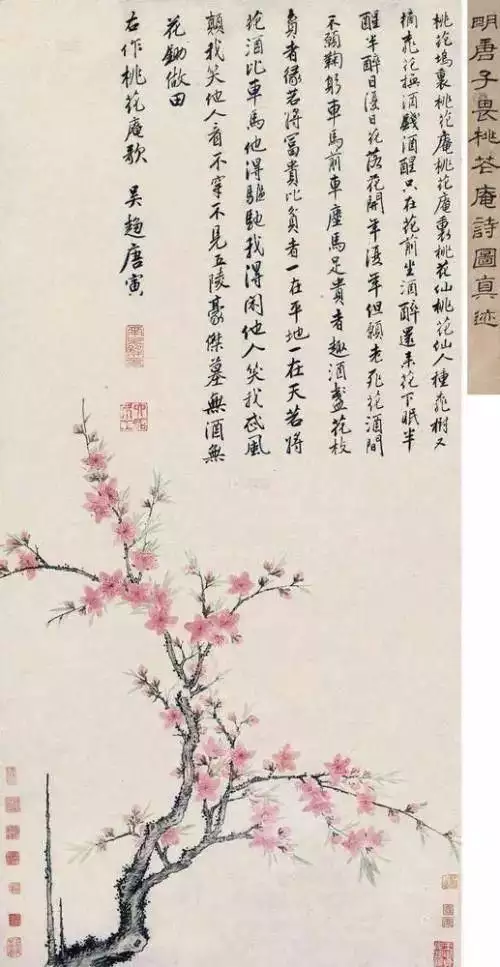 明唐子畏桃花庵詩圖真迹
桃花塢裏桃花庵桃花庵裏桃花仙桃花仙人種桃樹又
摘桃花換酒錢酒醒只在花前坐酒醉還来花下眠半
醒半醉日復日花落花開年復年但願老死花酒間
不願鞠躬車馬前車塵馬足貴者趣酒盞花枝
貧者緣若將冨貴比貧者一在平地一在天若將
花酒比車馬他得驅馳我得閒他人笑我忒風
顛我笑他人看不穿不見五陵豪傑墓無酒無
花鋤做田
右作桃花庵歌 吳趨唐寅